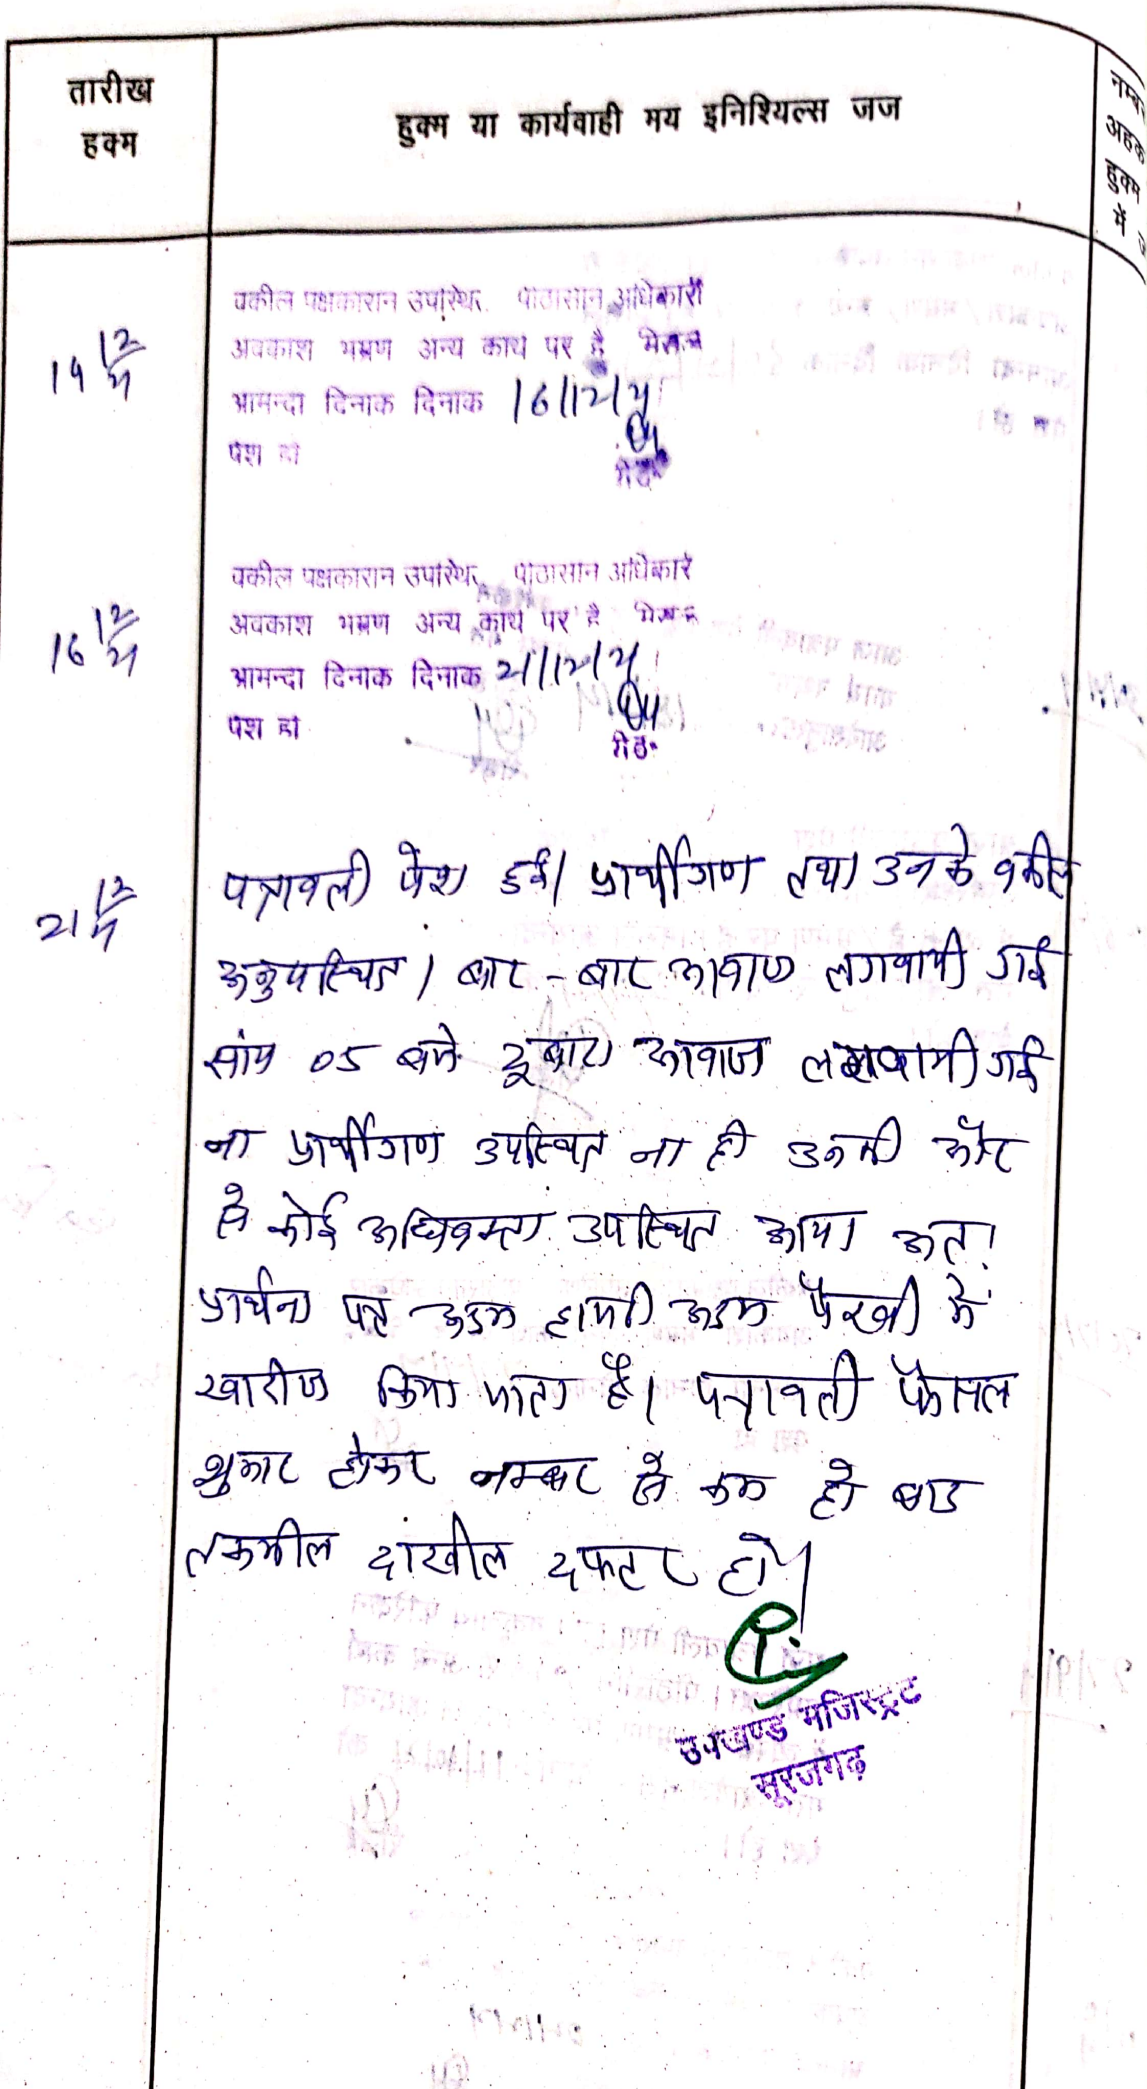 तारीख
हक्म
हुक्म या कार्यवाही मय इनिश्यिल्स जज
अहक
हुक्म
में
14 12
वकील पक्षकारान उपस्थित पीठासीन अधिकारी
अवकाश भम्रण अन्य कार्य पर है
आमन्दा दिनाक दिनाक 16/12/24
पेश हो
16 12
वकील पक्षकारान उपस्थित पीठासीन अधिकारी
अवकाश भम्रण अन्य कार्य पर है
आमन्दा दिनाक दिनाक 21/12/24
पेश हो
21 12
पत्रावली पेश हुई। प्रार्थीगण तथा उनके वकील
अनुपस्थित। बार-बार आवाज लगवायी गई
सांय 05 बजे दूबारा आवाज लगवायी गई
ना प्रार्थीगण उपस्थित ना ही उनकी और
से कोई अधिवक्ता उपस्थित आया अतः
प्रार्थना पत्र अदम हाजरी अदम पैरवी में
खारीज किया जाता है। पत्रावली फैसल
शुमार होकर नम्बर से कम हो बाद
तकमील दाखील दफ्तर हो।
उपखण्ड मजिस्ट्रेट
सूरजगढ़